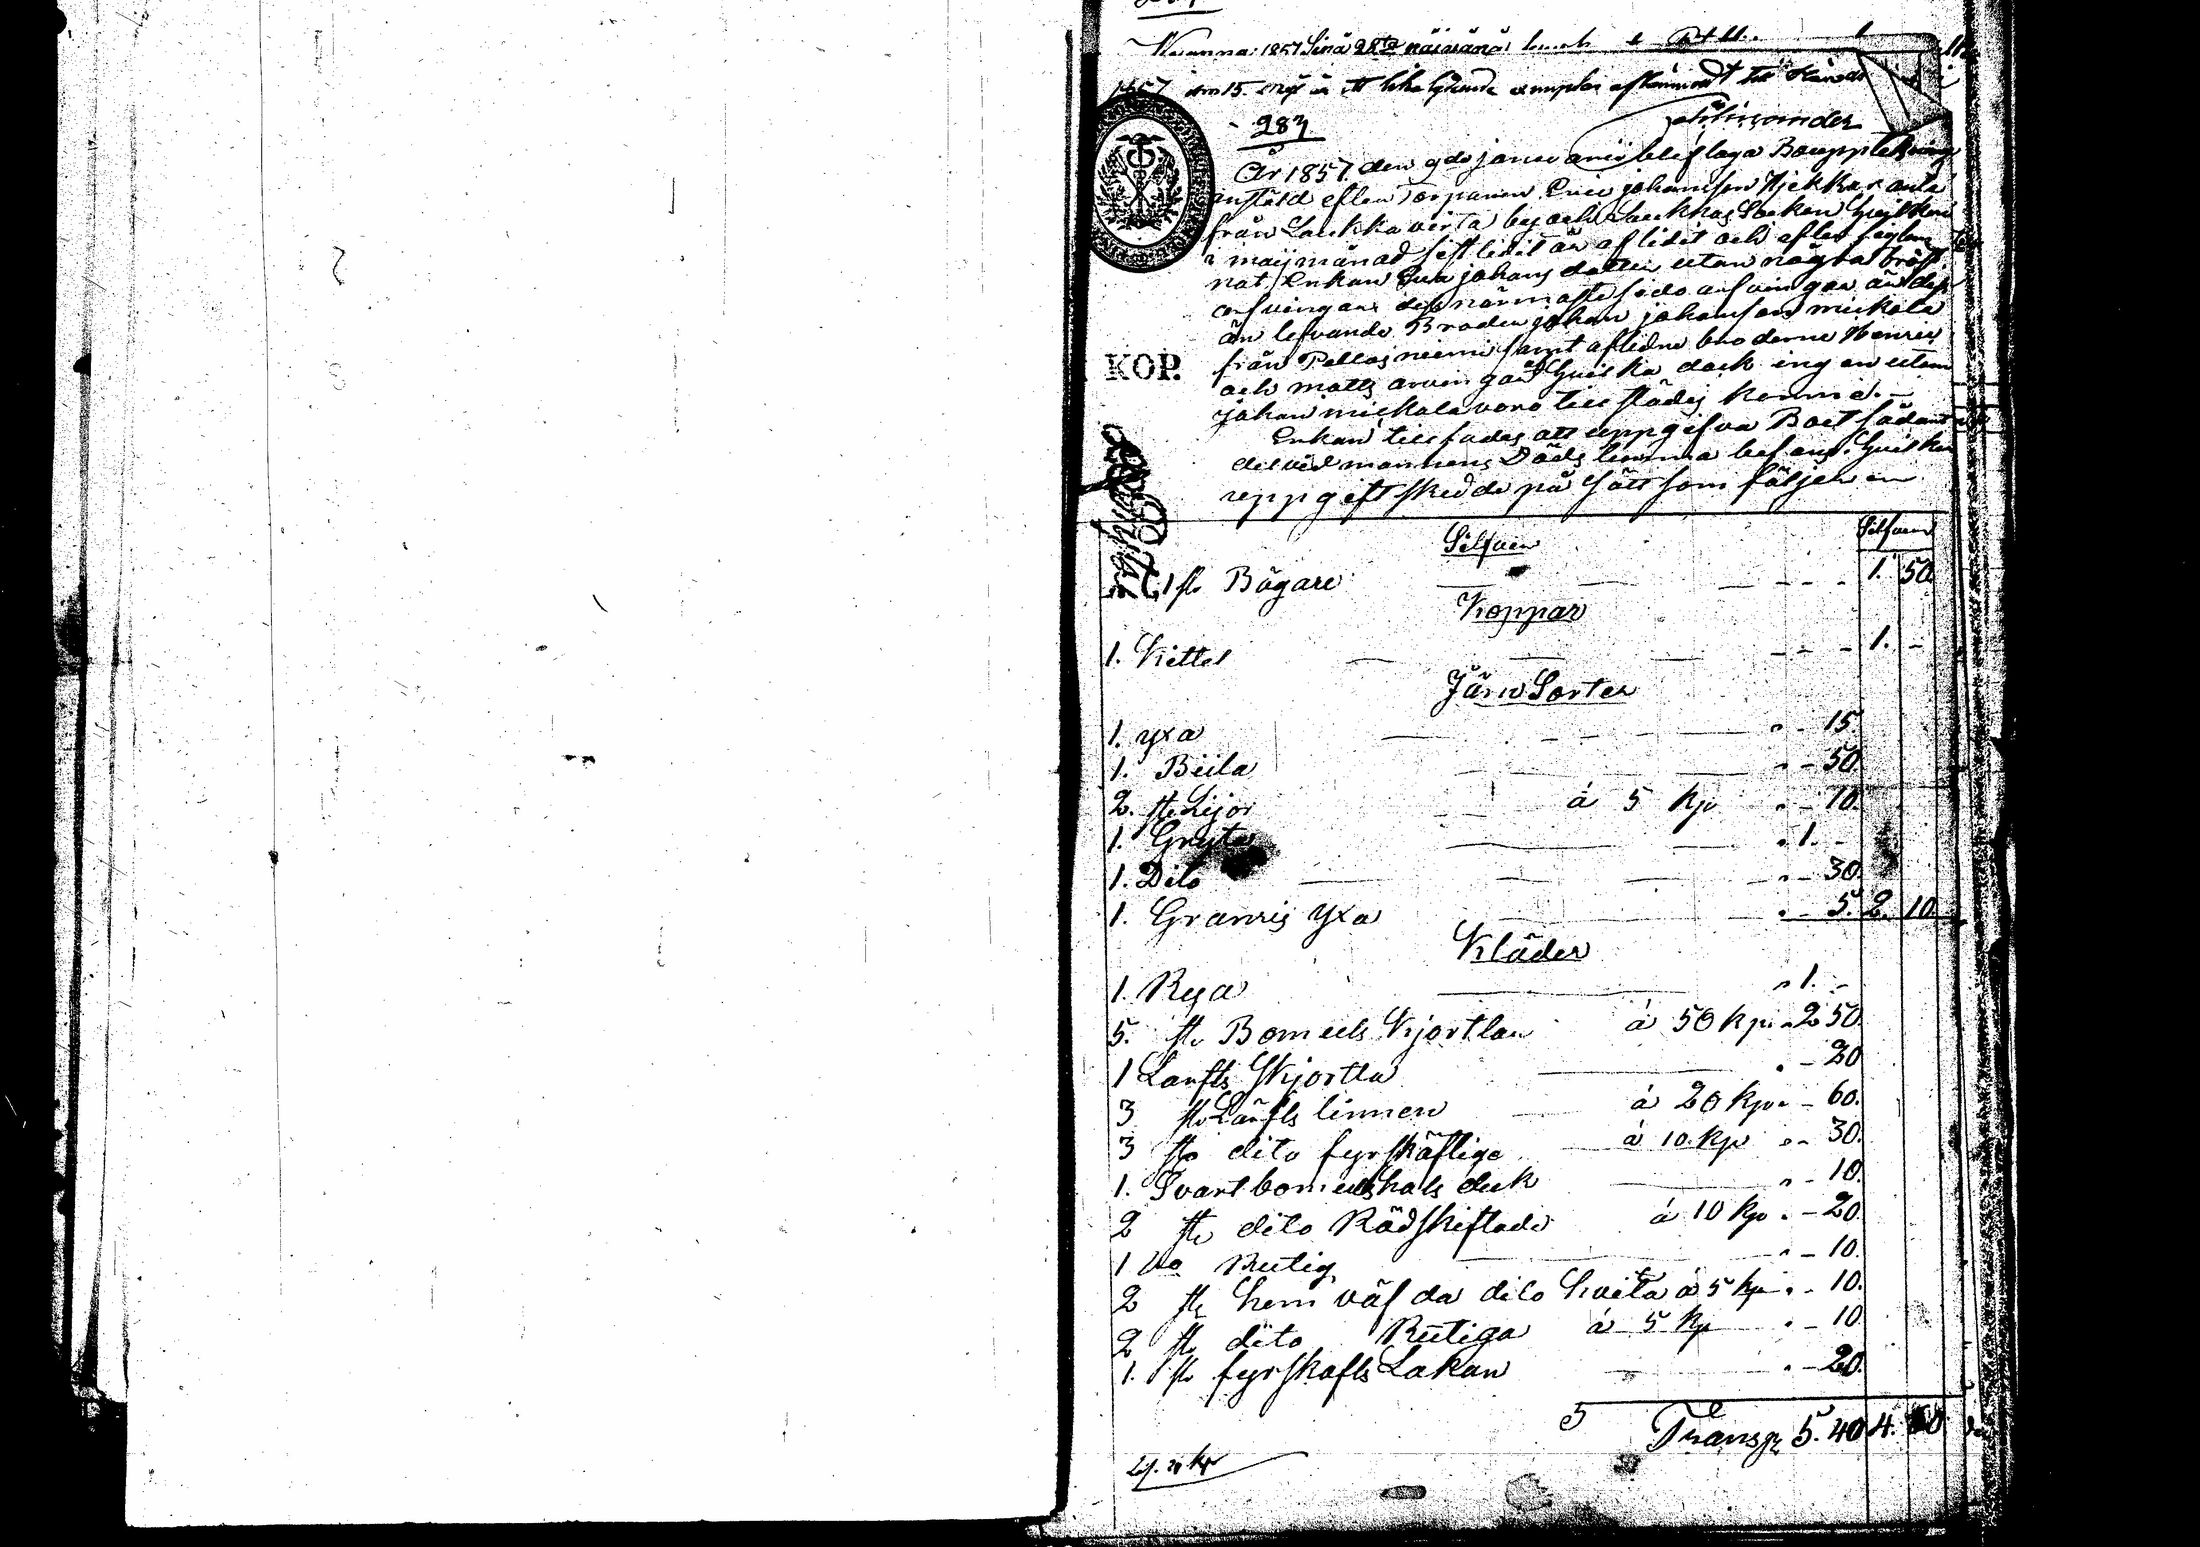 1857 Sinä 28ta päivänä
1857 den 15. Maji är ett lika lydande exemplar aflämnadt till
283
År 1857. den 9de januarii blef laga Bouppteckning
anstäld efter Torparen Eric johansson Hjekkaranta
från Laukkavirta by och Lucknas Socken hvilken
i maij månad sistledit år aflidit och efter sig lem
nat Enkan Eva johans dotter utan några bröst
arfvingar dess närmaste sido arfvingar är dess
än lefvande Broder johan johansson mickola
från Pellosniemi samt aflidne broderne Henric
och matts arvingar hvilka dock ingen utom
johan mickola voro till städes komne. -
Enkan tillsades att uppgifva Boet sådant
det vid mannens Döds timma befans. hvilken
uppgift skedde på sätt som följer
KOP.
Silfver
Silfver
1 st Bägare 1. 50
Koppar
1. Kittel 1. -
Järn Sorter
1. yxa " - 15.
1. Biila " - 50.
2. st Lijor á 5 Kp " - 10.
1. Gryta " 1. -
1. Dito " - 30.
1. Granris yxa " - 5. 2. 10.
Kläder
1. Rya " 1. -
5. st Bomuls Kjortlar á 50 kp " 2 50
1 Lärfts Skjorta " - 20
3 st Lärfts linnen á 20 kp " - 60.
3 st dito fyrskäftige á 10 kp " - 30.
1. Svart bomulls hals duk " - 10.
2 st dito Rödskiftade á 10 kp " - 20.
1 do Rutig " - 10.
2 st hemväfda dito hvita á 5 kp " - 10.
2 st dito Rutiga á 5 kp " - 10
1. st fyrskafts Lakan " - 20.
Transp 5. 40 4. 60